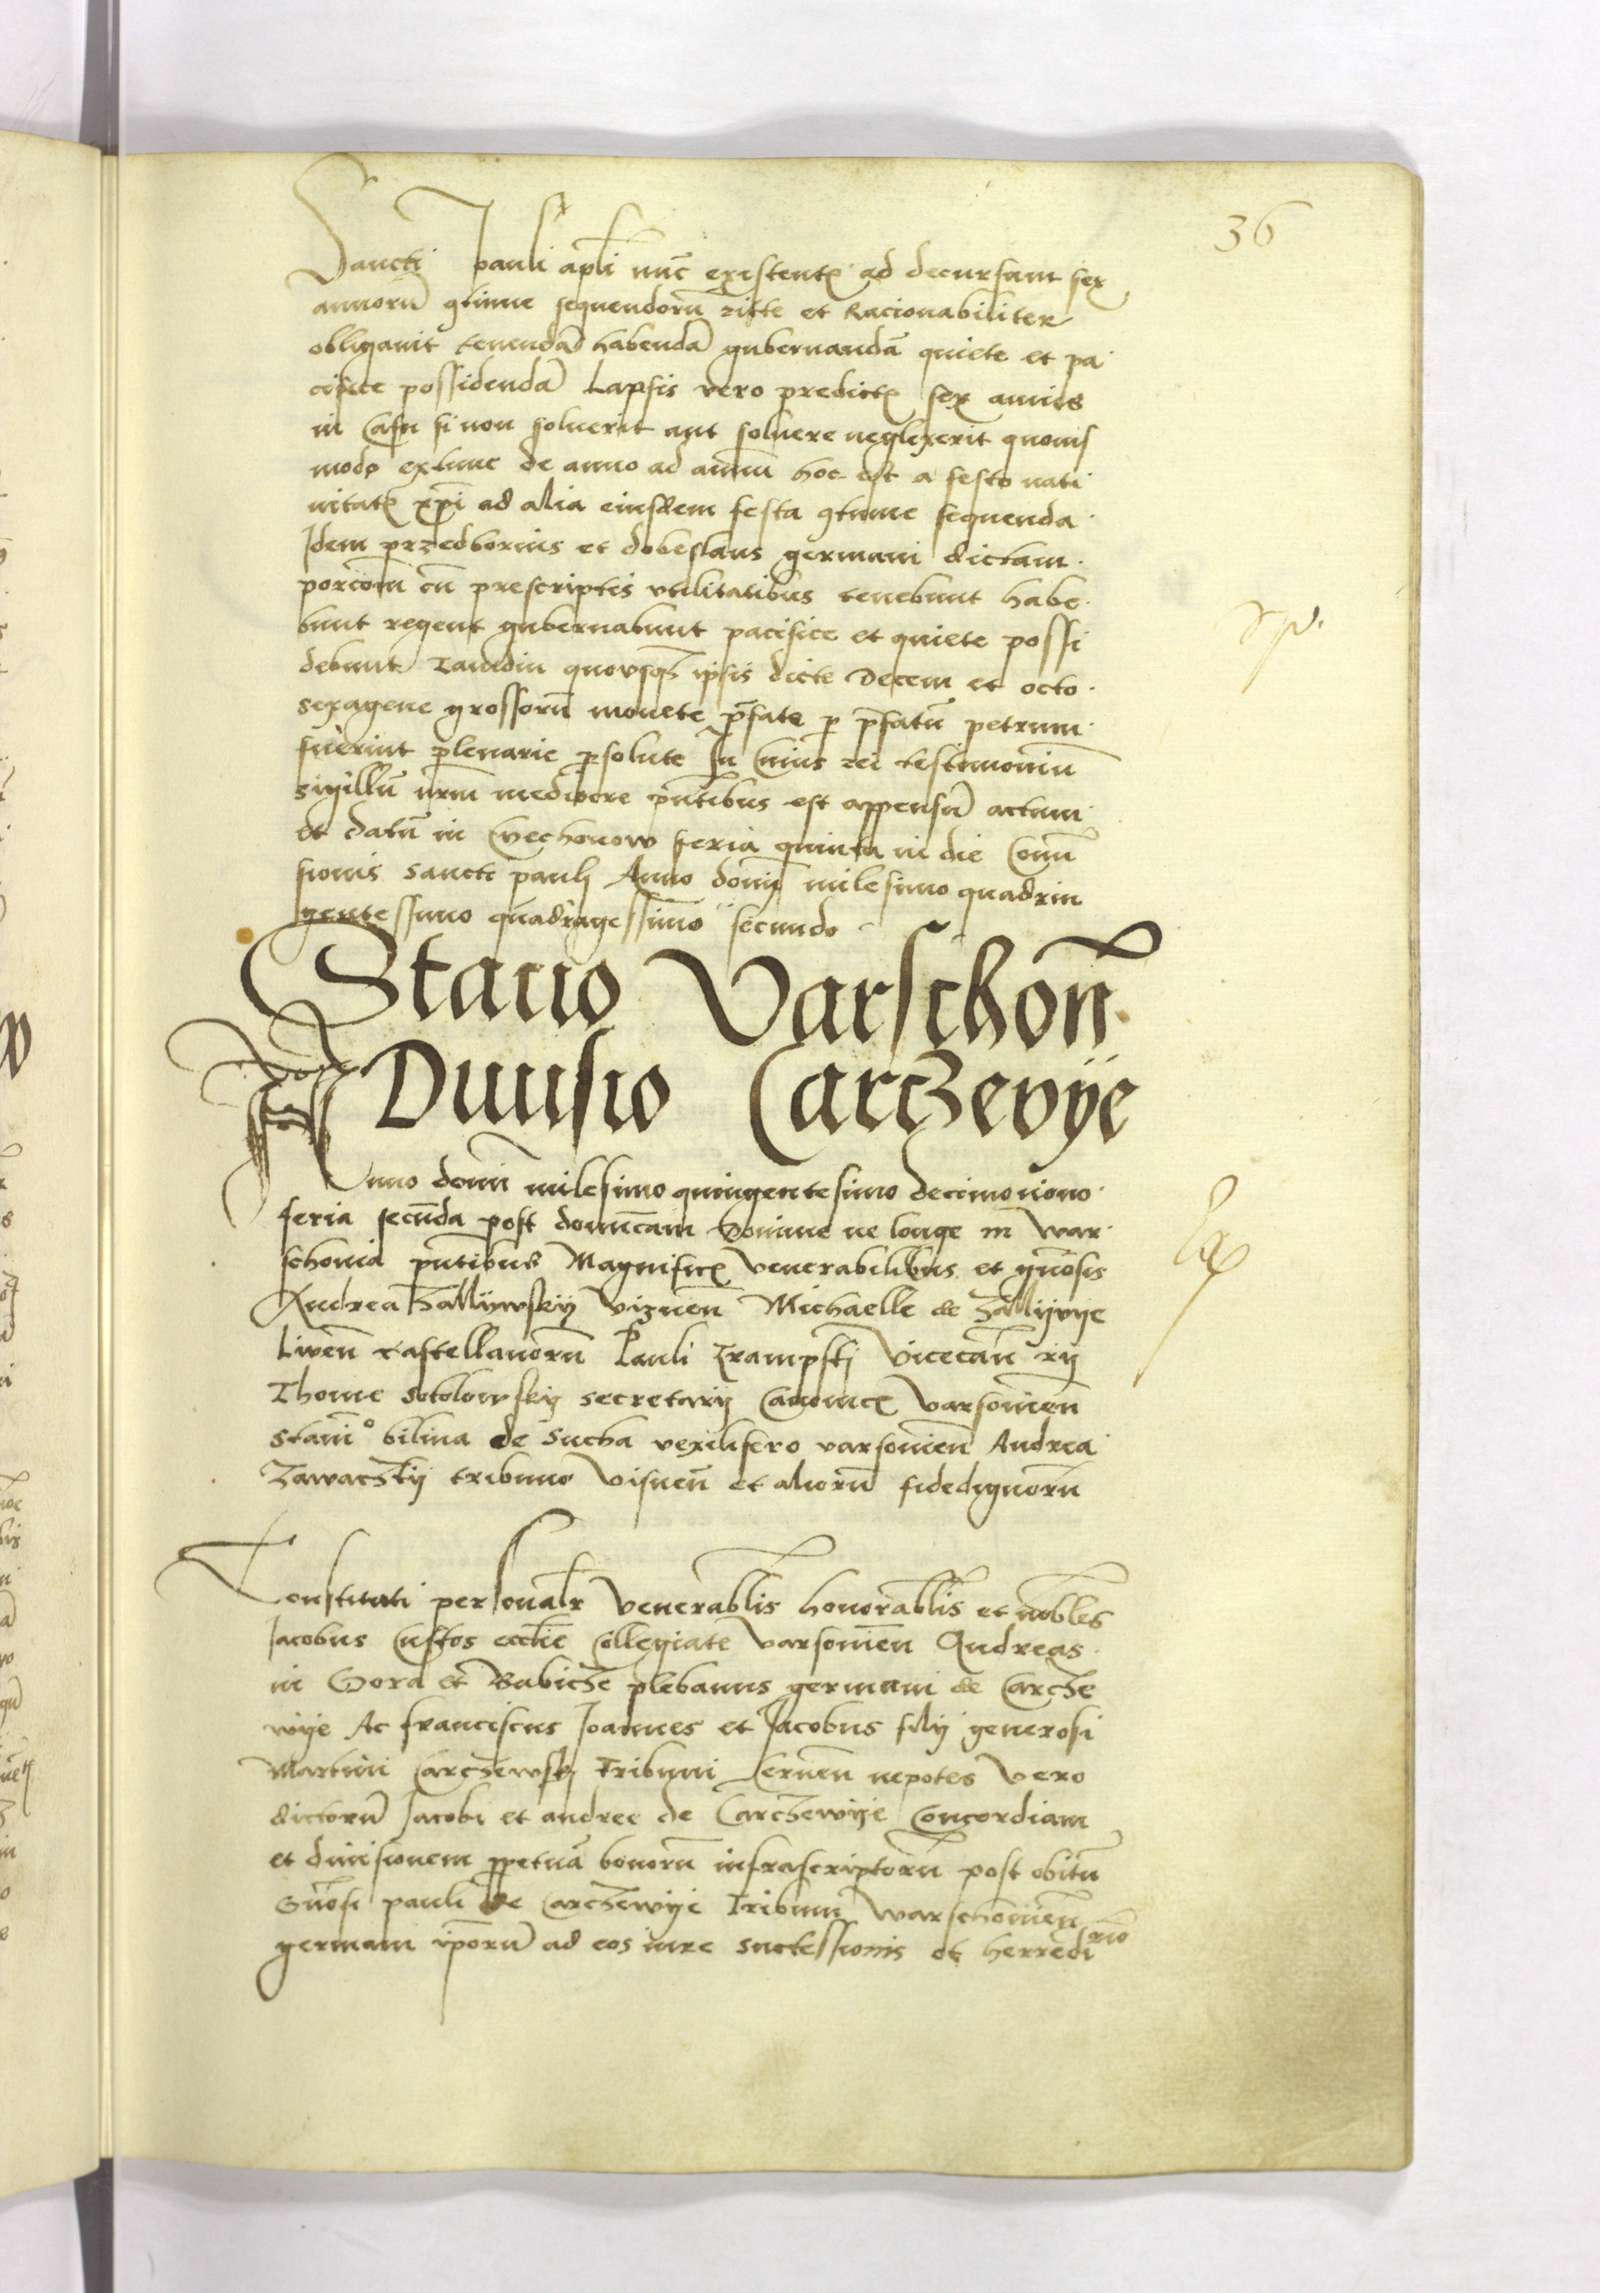 36
Sancti pauli apli nuc existentꝭ ad decursum sex
annorū ꝯtinue sequendorū ritte et Racionabiliter
obligauit tenendā habendā gubernandā quiete et pa
cifice possidendā Lapsis vero predictꝭ sex annis
in Casu si non soluerit aut soluere neglexerit quouis
modo extunc de anno ad annū hoc est a festo nati
uitatꝭ xpi ad alia eiusdem festa ꝯtinue sequenda
Idem przedborius et dobeslaus germani dictam
porcōm cū prescriptis vtilitatibus tenebunt habe
bunt regent gubernabunt pacifice et quiete possi
debunt Tamdiu quousqꝫ ipsis dicte Decem et octo
sexagene grossorū monete p̄fate ꝑ p̄fatū petrum
fuerint plenarie ꝑsolute In Cuius rei testimoniū
sigillū nrm̄ mediocre pn̄tibus est appensū actum
et datū in feria quinta in die Conū
sionis sancti pauli Anno domi milesimo quadrin
gentessimo quadragessimo secundo
Stacio Varschoñ
Diuisio Carczevÿe
Anno domi milesimo quingentesimo decimonono
feria secūda post domīcam Domine ne longe in war
schouia pn̄tibus Magnificꝭ venerabilibus et gn̄osis
Andrea Zallÿwskÿ viznen̄ Michaelle de Zallÿvÿe
Liven̄ castellanorū Pauli Vicecan̄ rÿ
Thome sokolowskÿ secretarÿ Canonicꝭ varsouien̄
stani⁰ bilina de sucha vexilifero varsouien̄ Andrea
Zawaczkÿ tribuno visnen̄ et aliorū fidedignorū
Constituti personalr venerabl̄is honorabl̄is et nobl̄es
Iacobus Custos eccl̄ie Collegiate varsouien̄ Andreas
in Gora et Babicze plebanus germani de Carcze
wÿe Ac franciscus Ioannes et Iacobus filÿ generosi
Martini Carczewskÿ Tribuni Cernen̄ nepotes vero
dictorū Iacobi et andree de Carczewÿe Concordiam
et diuisionem ꝑpetuā bonorū infrascriptorū post obitū
Gn̄osi pauli de Carczewÿe Tribuni warschouien̄
germani ip̄orū ad eos iure suctessionis et herredi
rio